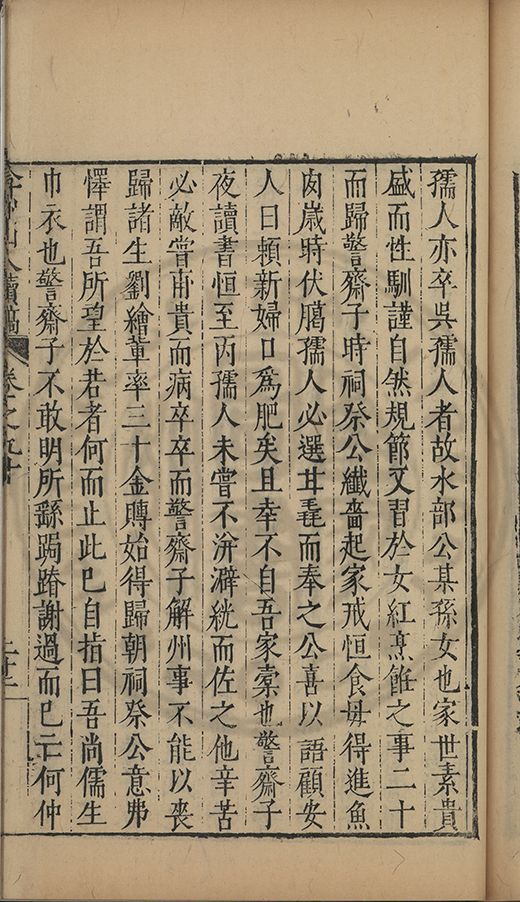 孺人亦卒吳孺人者故水部公某孫女也家世素貴
盛而性馴謹自然規節又習於女紅烹飪之事二十
而歸警齋子時祠祭公纖嗇起家戒恒食毋得進魚
肉嵗時伏臈孺人必選甘毳而奉之公喜以語顧安
人曰頼新婦口爲肥矣且幸不自吾家橐也警齋子
夜讀書恒至丙孺人未嘗不洴澼絖而佐之他辛苦
必敵嘗甫貴而病卒卒而警齋子解州事不能以喪
歸諸生劉繪軰率三十金賻始得歸朝祠祭公意弗
懌謂吾所望於若者何而止此已自指曰吾尚儒生
巾衣也警齋子不敢明所繇跼蹐謝過而已云何仲
弇州山人續稿 卷之九十 二十二